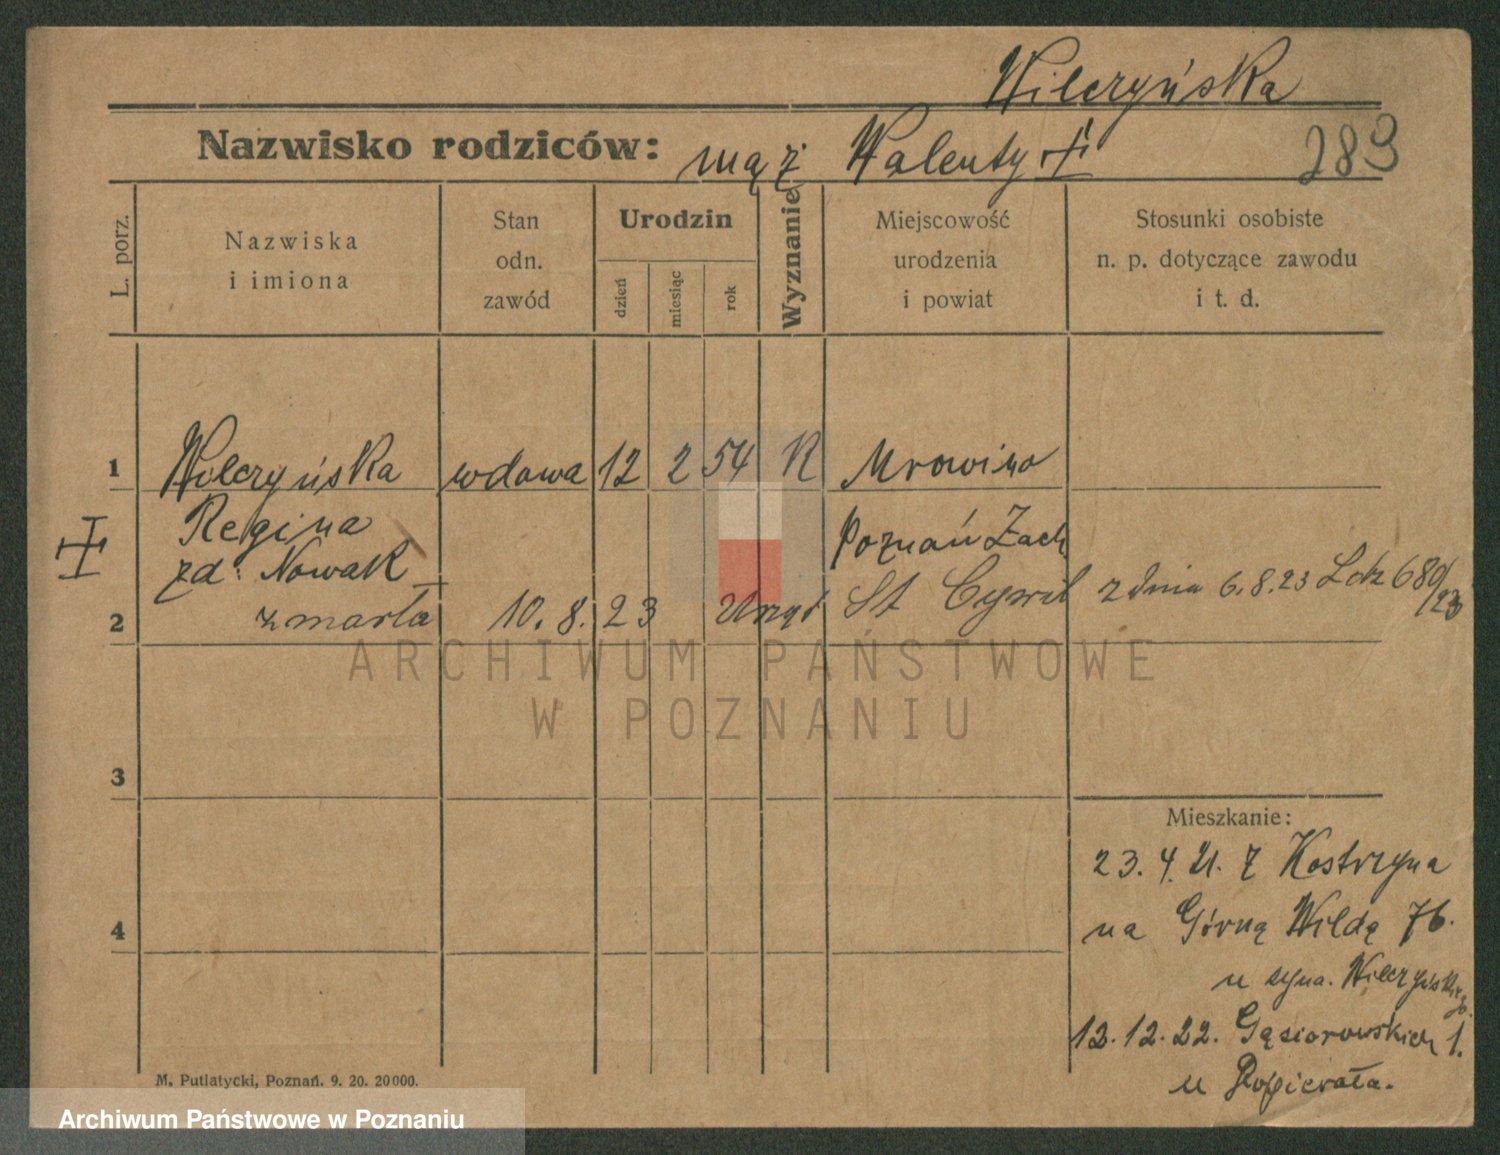 Wilczyńska
Nazwisko rodziców: mąż Walenty
283
L. porz.
Nazwiska
i imiona
Stan
odn.
zawód
Urodzin
dzień
miesiąc
rok
Wyznanie
Miejscowość
urodzenia
i powiat
Stosunki osobiste
n. p. dotyczące zawodu
i t. d.
1 Wilczyńska wdowa 12 2 54 K Mrowino
Regina Poznań Zach
zd: Nowak
2 zmarła 10. 8. 23 Urząd St Cywil z dnia 6.8.23 Ldz 680/23
ARCHIWUM PAŃSTWOWE
W POZNANIU
3
4
Mieszkanie:
23. 4. 21. z Kostrzyna
na Górną Wildę 76.
u syna. Wilczyńskiego
12.12.22. Gąsiorowskich 1.
u Rogierała.
M. Putiatycki, Poznań. 9. 20. 20000.
Archiwum Państwowe w Poznaniu